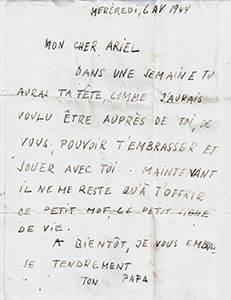 MERCREDI, 6 AV. 1944
MON CHER ARIEL
DANS UNE SEMAINE TU
AURAS TA FÊTE, COMME J'AURAIS
VOULU ÊTRE AUPRÈS DE TOI, DE
VOUS, POUVOIR T'EMBRASSER ET
JOUER AVEC TOI. MAINTENANT
IL NE ME RESTE QU'À T'OFFRIR
CE PETIT MOT, CE PETIT SIGNE
DE VIE.
A BIENTÔT, JE VOUS EMBRAS
SE TENDREMENT
TON PAPA